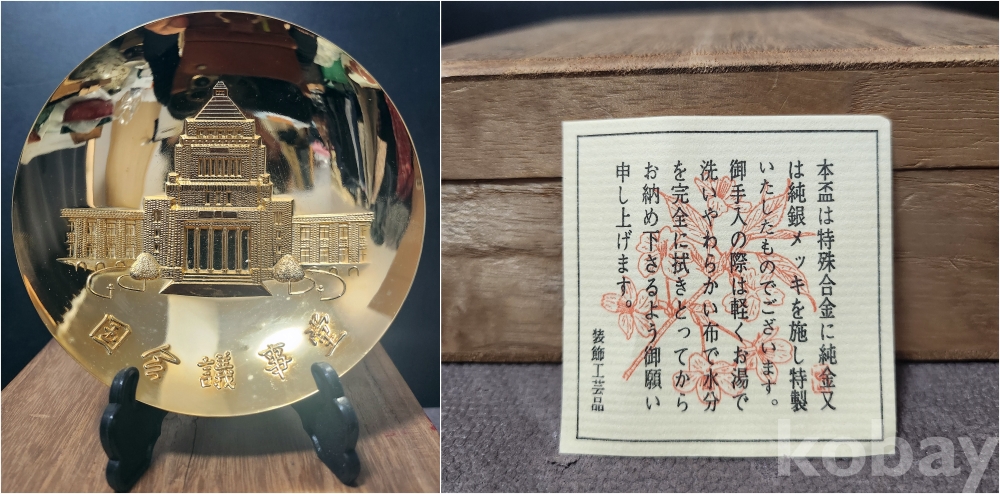 国会議事堂
本盃は特殊合金に純金又
は純銀メッキを施し特製
いたしたものでございます。
御手入の際は軽くお湯で
洗いやわらかい布で水分
を完全に拭きとってから
お納め下さるよう御願い
申し上げます。
装飾工芸品
kobay